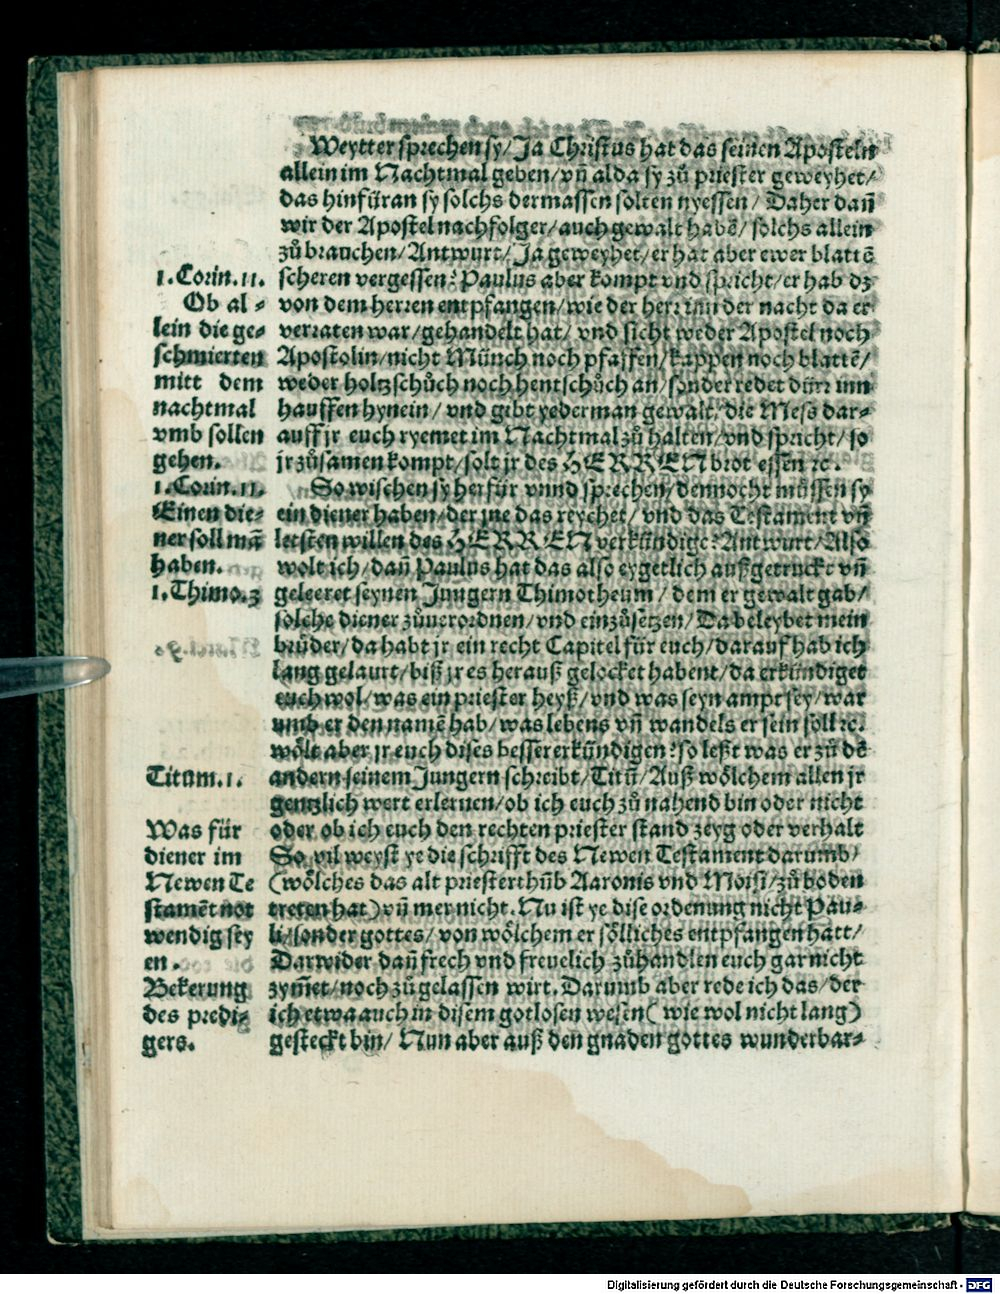 Weytter sprechen sy/ Ja Christus hat das seinen Aposteln
allein im Nachtmal geben/ vñ alda sy zů priester geweyhet/
das hinfüran sy solchs dermassen solten nyessen/ Daher dañ
wir der Apostel nachfolger/ auch gewalt habẽ/ solchs allein
zů brauchen/ Antwurt/ Ja geweyhet/ er hat aber ewer blattẽ
1. Corin. 11.
scheren vergessen? Paulus aber kompt vnd spricht/ er hab dz
Ob al-
von dem herren entpfangen/ wie der herr inn der nacht da er
lein die ge-
verraten war/ gehandelt hat/ vnd sicht weder Apostel noch
schmierten
Apostolin/ nicht Münch noch pfaffen/ kappen noch blattẽ/
mitt dem
weder holtzschůch noch hentschůch an/ sonder redet dürr inn
nachtmal
hauffen hynein/ vnd gibt yederman gewalt/ die Mess dar-
vmb sollen
auff jr euch ryemet im Nachtmal zů halten/ vnd spricht/ so
gehen.
jr zůsamen kompt/ solt jr des HERREN brot essen ꝛc.
1. Corin. 11.
So wischen sy herfür vnnd sprechen/ dennocht müssen sy
Einen die-
ein diener haben/ der jne das reychet/ vnd das Testament vñ
ner soll mã
letsten willen des HERREN verkündige? Antwurt/ Also
haben.
wolt ich/ dañ Paulus hat das also eygetlich außgetruckt vñ
1. Thimo. 3
geleeret seynen Jungern Thimotheum/ dem er gewalt gab/
solche diener zůuerordnen/ vnd einzůsetzen/ Da beleybet mein
brüder/ da habt jr ein recht Capitel für euch/ darauf hab ich
lang gelaurt/ biß jr es herauß gelocket habent/ da erkündiget
euch wol/ was ein priester heyß/ vnd was seyn ampt sey/ war
umb er den namẽ hab/ was lebens vñ wandels er sein soll ꝛc.
wölt aber jr euch dises besser erkündigen? so leßt was er zů dẽ
Titum. 1.
andern seinem Jungern schreibt/ Titũ/ Auß wölchem allen jr
gentzlich wert erlernen/ ob ich euch zů nahend bin oder nicht
Was für
oder ob ich euch den rechten priester stand zeyg oder verhalt
diener im
So vil weyst ye die schrifft des Newen Testament darumb/
Newen Te
(wölches das alt priesterthũb Aaronis vnd Moisi/ zů boden
stamẽt not
treten hat) vñ mer nicht. Nu ist ye dise ordenung nicht Pau-
wendig sey
li/ sonder gottes/ von wölchem er sölliches entpfangen hatt/
en.
Darwider dañ frech vnd freuelich zůhandlen euch gar nicht
Bekerung
zym̃et/ noch zů gelassen wirt. Darumb aber rede ich das/ der
des predi-
ich etwa auch in disem gotlosen wesen (wie wol nicht lang)
gers.
gesteckt bin/ Nun aber auß den gnaden gottes wunderbar-
Digitalisierung gefördert durch die Deutsche Forschungsgemeinschaft - DFG